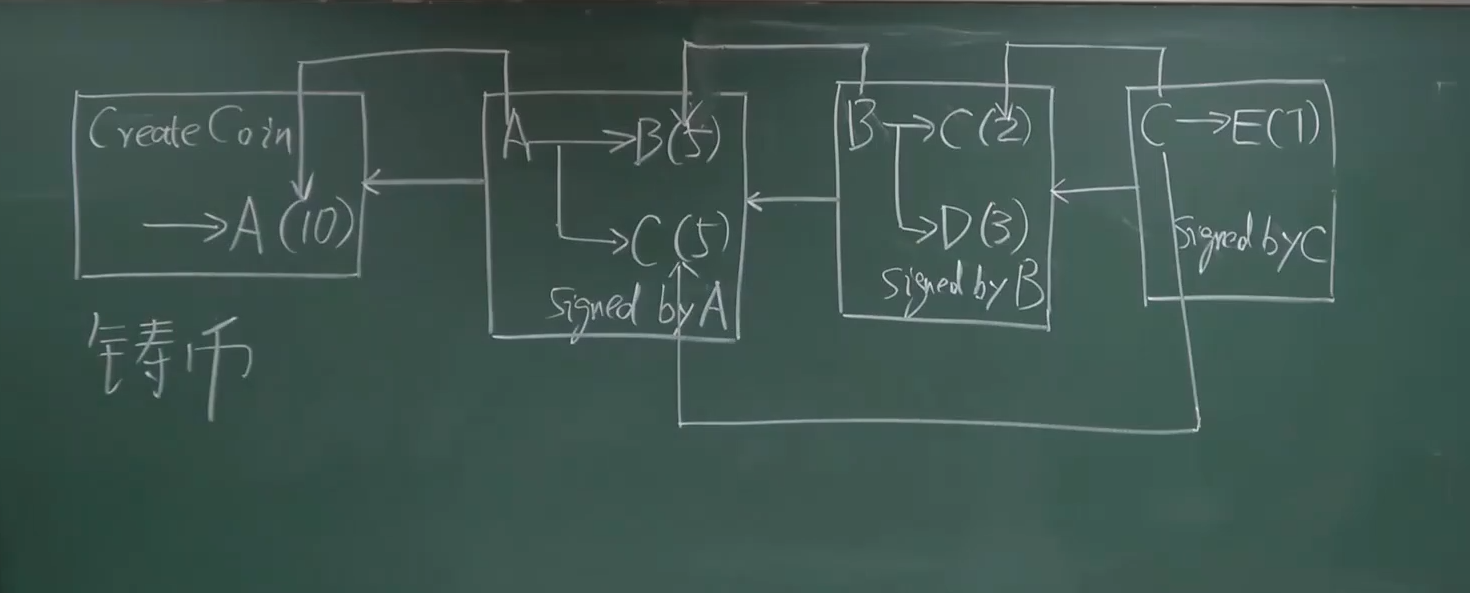 Create Coin
→A (10)
铸币
A →B(5)
→C (5)
Signed by A
B →C(2)
→D(3)
Signed by B
C →E(7)
Signed by C